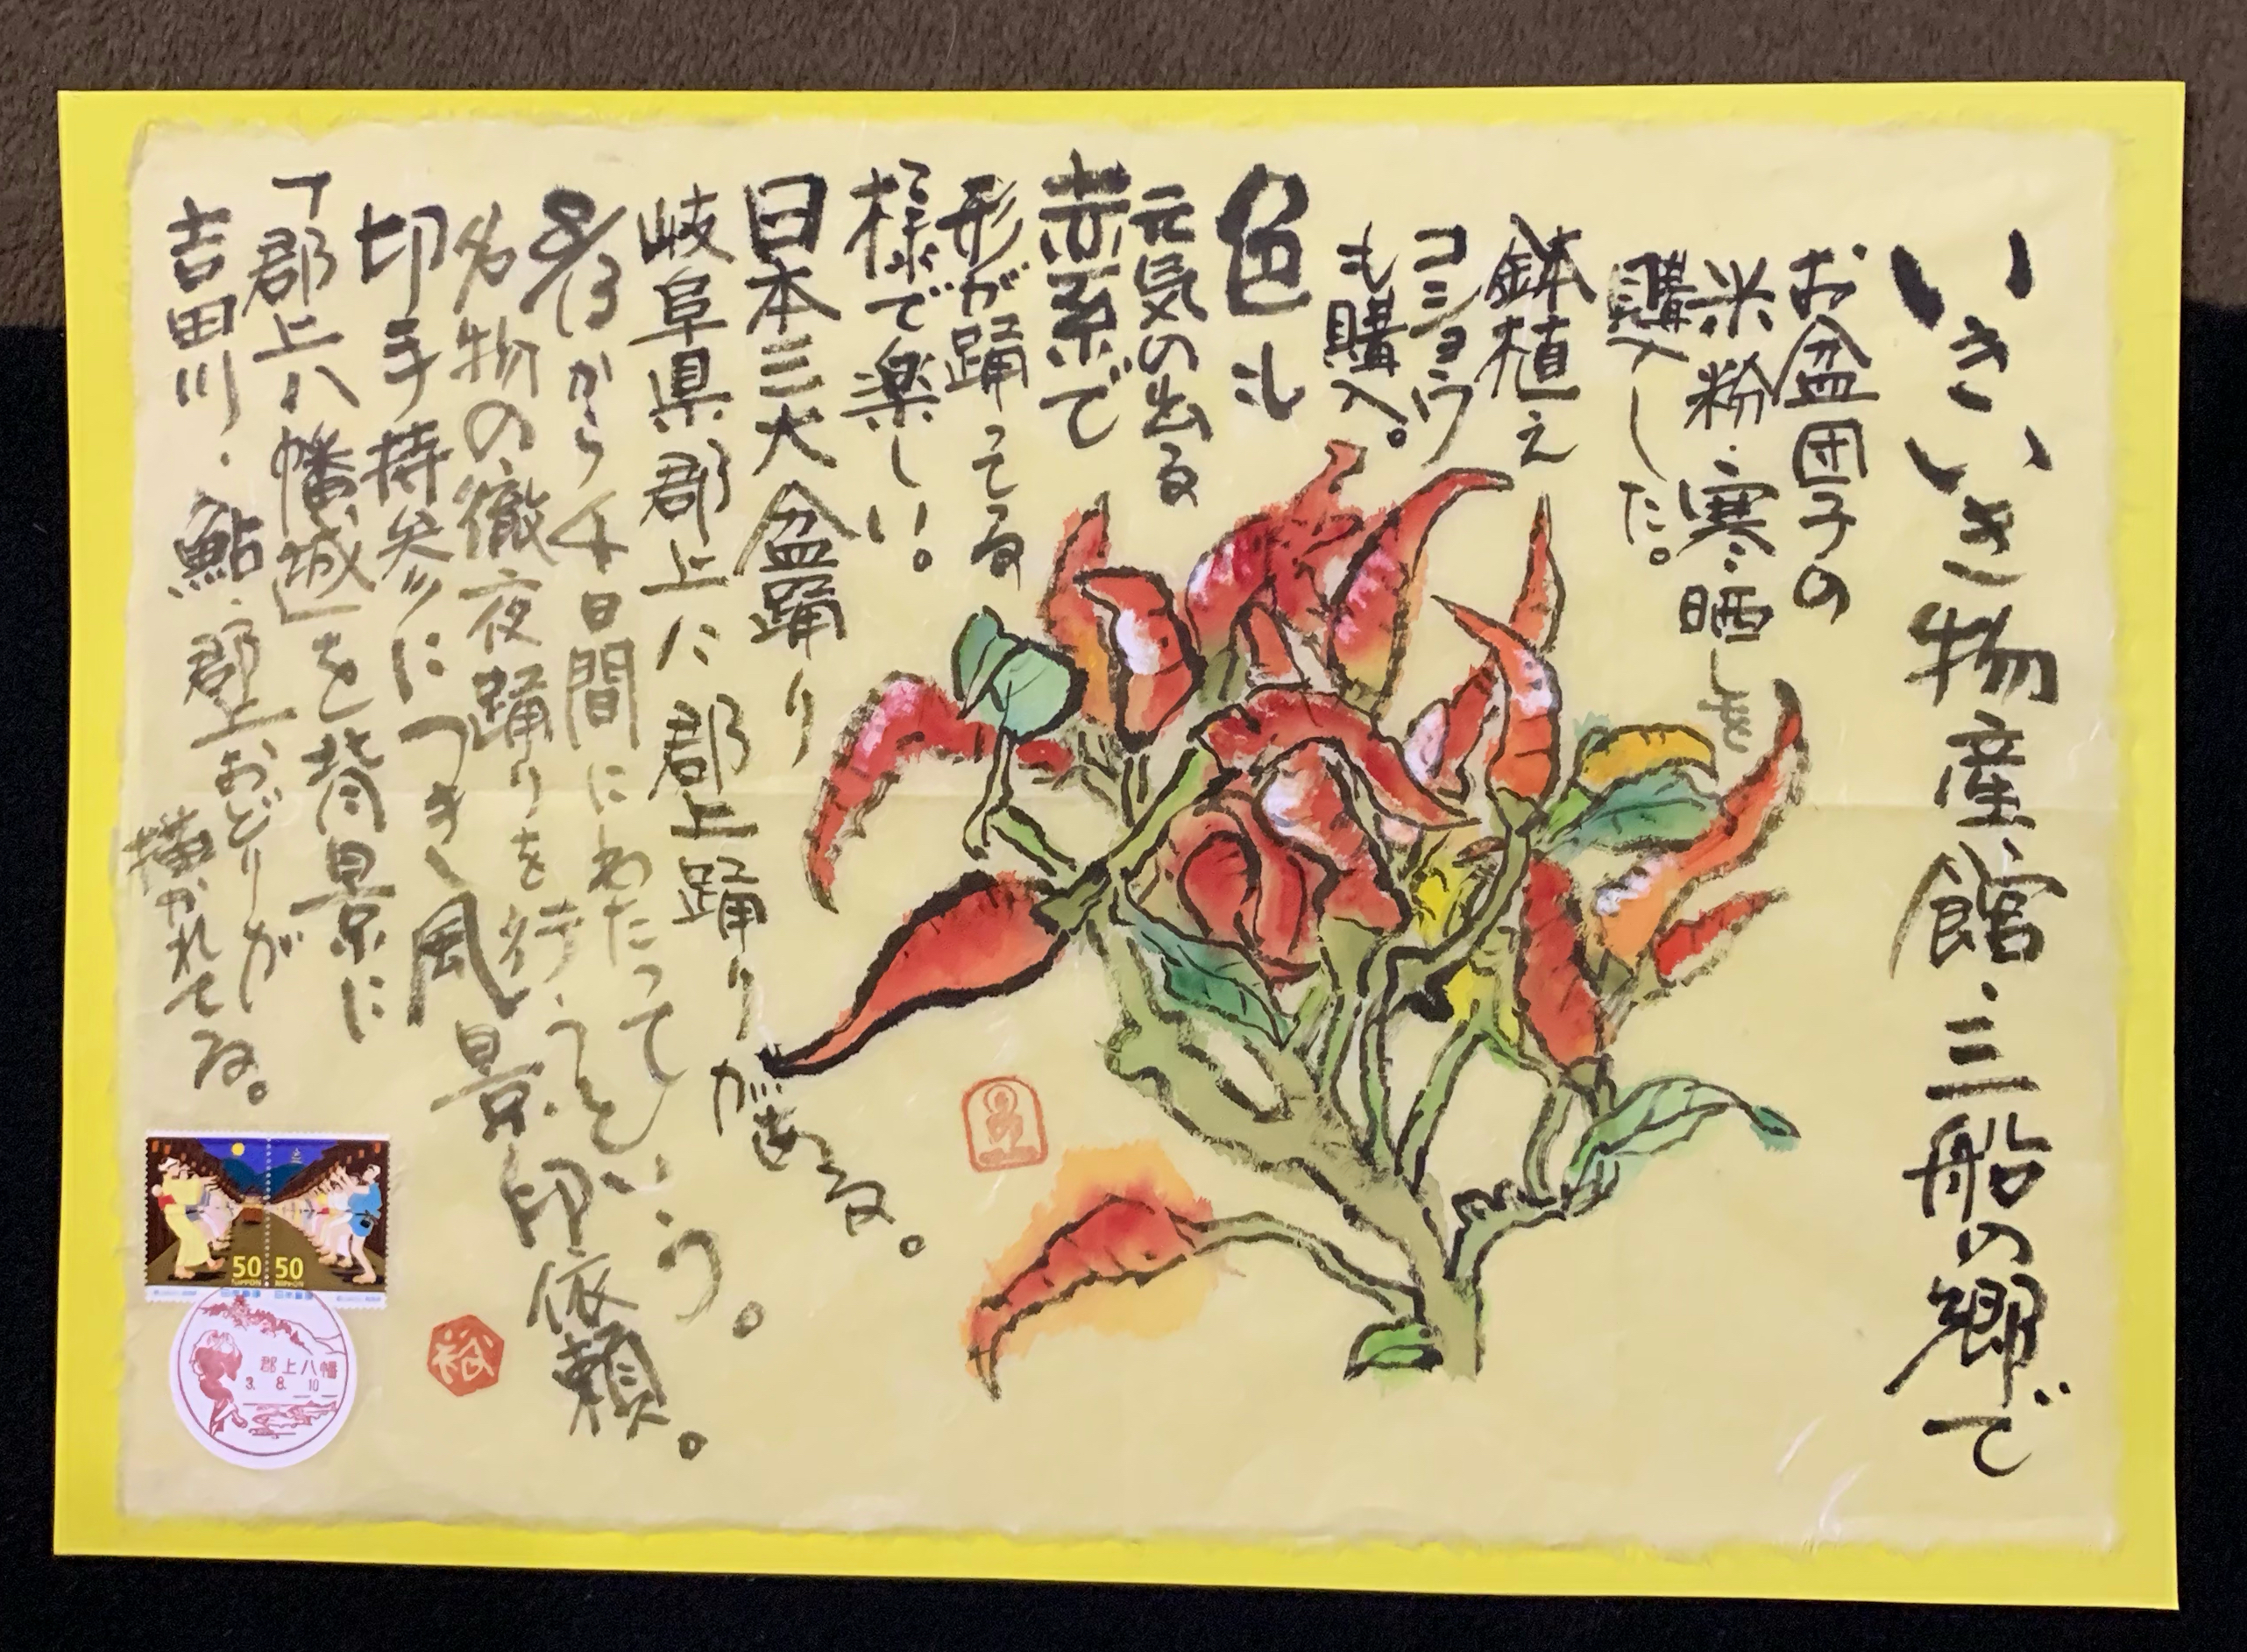 いきいき物産館・三船の郷で
お盆団子の
米粉・寒晒しを
購入した。
鉢植え
コショウ
も購入。
色も
元気の出る
赤系で
形が踊ってる
様で楽しい。
日本三大盆踊り
岐阜県郡上に郡上踊りがある。
8/13から4日間にわたって
名物の徹夜踊りを行うという。
切手持参につき風景印依頼。
「郡上八幡城」を背景に
吉田川・鮎・郡上おどりが
描かれてる。
50 50
NIPPON NIPPON
日本郵便 日本郵便
郡上八幡
3. 8. 10
裕